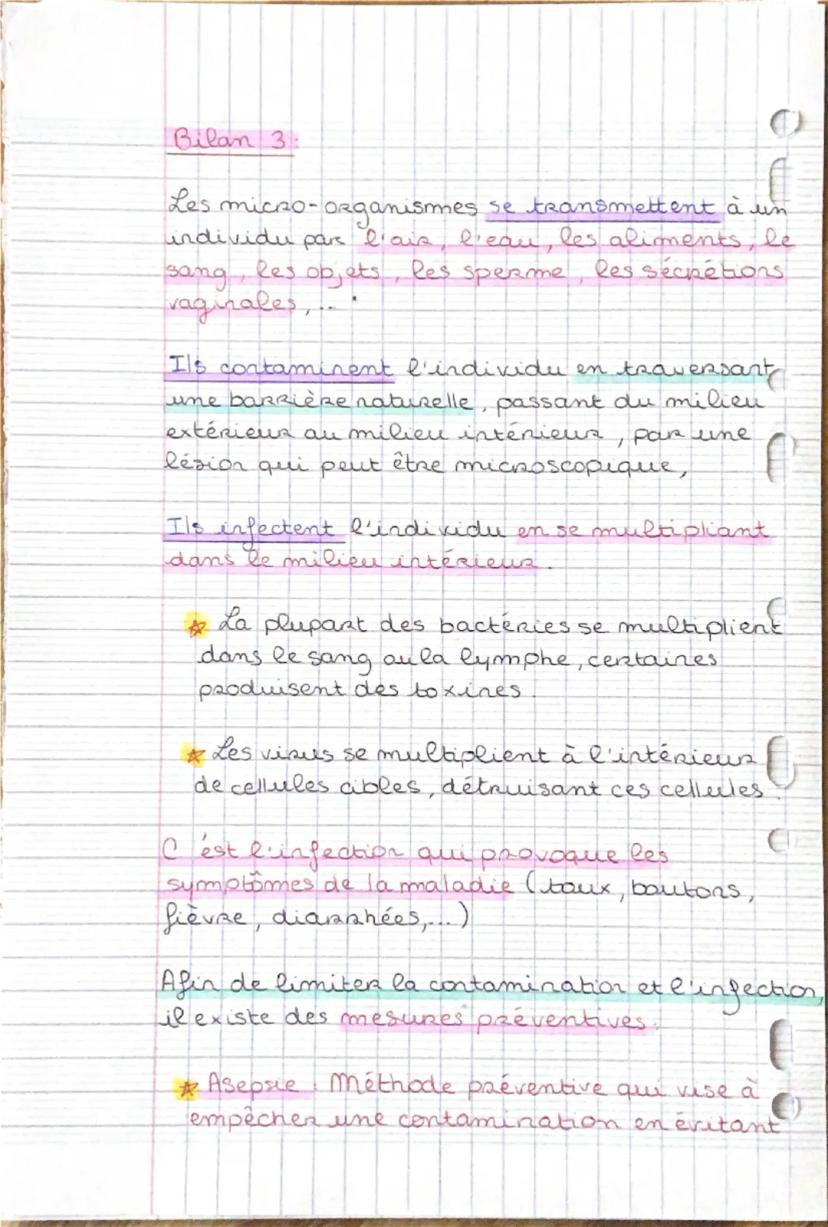 Bilan 3:
Les micro-organismes se transmettent à un
individu par l'air, l'eau, les aliments, le
sang, les objets, les sperme, les sécrétions
vaginales,...
Ils contaminent l'individu en traversant
une barrière naturelle, passant du milieu
extérieur au milieu intérieur, par une
lésion qui peut être microscopique,
Ils infectent l'individu en se multipliant
dans le milieu intérieur.
La plupart des bactéries se multiplient
dans le sang ou la lymphe, certaines
produisent des toxines.
Les virus se multiplient à l'intérieur
de cellules cibles, détruisant ces cellules.
C'est l'infection qui provoque les
symptômes de la maladie (toux, boutons,
fièvre, diarrhées,...)
Afin de limiter la contamination et l'infection,
il existe des mesures préventives.
Asepsie : Méthode préventive qui vise à
empêcher une contamination en évitant